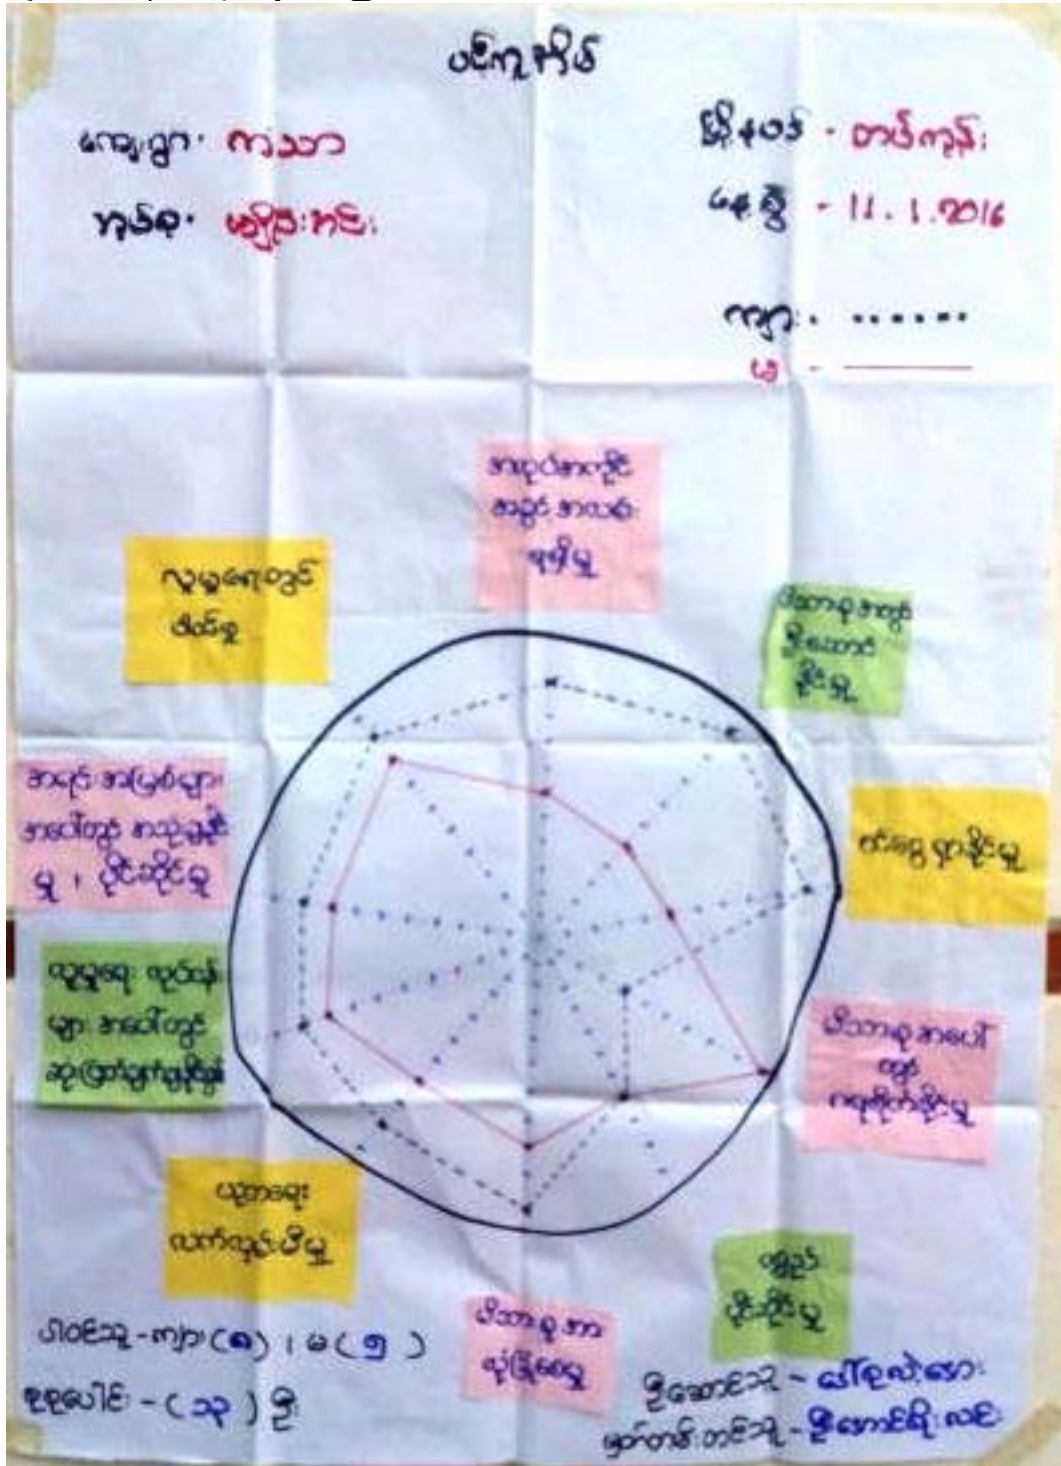 ပင့်ကူအိမ်
ကျေးရွာ - ကံသာ
မြို့နယ် - တပ်ကုန်း
အုပ်စု - မျိုးအင်း
နေ့စွဲ - 11.1.2016
ကျား - ......
မ -
အလုပ်အကိုင်
အခွင့်အလမ်း
ရရှိမှု
လူမှုရေးတွင်
ပါဝင်မှု
မိသားစုအတွင်း
ဦးဆောင်
နိုင်မှု
အရင်းအမြစ်များ
အပေါ်တွင် အသုံးချနိုင်
မှု ၊ ပိုင်ဆိုင်မှု
ဝင်ငွေ ရှာနိုင်မှု
လူမှုရေး လုပ်ငန်း
များ အပေါ်တွင်
ဆုံးဖြတ်ချက်ချနိုင်မှု
မိသားစုအပေါ်
တွင်
ဂရုစိုက်နိုင်မှု
ပညာရေး
လက်လှမ်းမီမှု
ပစ္စည်း
ပိုင်ဆိုင်မှု
မိသားစုအား
လုံခြုံစေမှု
ပါဝင်သူ - ကျား (၈) ၊ မ (၅)
စုစုပေါင်း - (၁၃) ဦး
ဦးဆောင်သူ - ဒေါ်စုလဲ့အေး
မှတ်တမ်းတင်သူ - ဦးအောင်မိုးလင်း